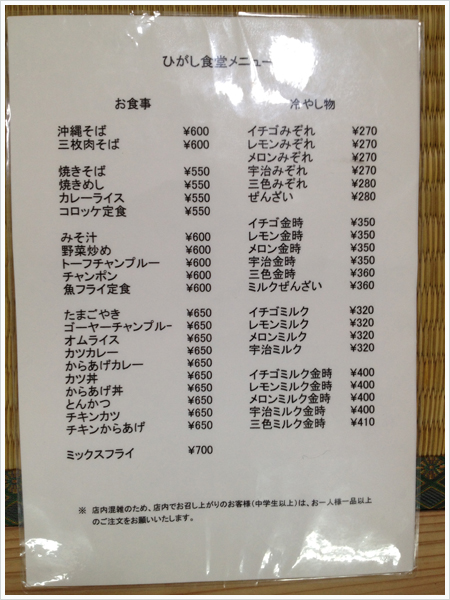 ひがし食堂メニュー
お食事
沖縄そば ¥600
三枚肉そば ¥600
焼きそば ¥550
焼きめし ¥550
カレーライス ¥550
コロッケ定食 ¥550
みそ汁 ¥600
野菜炒め ¥600
トーフチャンプルー ¥600
チャンポン ¥600
魚フライ定食 ¥600
たまごやき ¥650
ゴーヤーチャンプルｰ ¥650
オムライス ¥650
カツカレー ¥650
からあげカレー ¥650
カツ丼 ¥650
からあげ丼 ¥650
とんかつ ¥650
チキンカツ ¥650
チキンからあげ ¥650
ミックスフライ ¥700
冷やし物
イチゴみぞれ ¥270
レモンみぞれ ¥270
メロンみぞれ ¥270
宇治みぞれ ¥270
三色みぞれ ¥280
ぜんざい ¥280
イチゴ金時 ¥350
レモン金時 ¥350
メロン金時 ¥350
宇治金時 ¥350
三色金時 ¥360
ミルクぜんざい ¥360
イチゴミルク ¥320
レモンミルク ¥320
メロンミルク ¥320
宇治ミルク ¥320
イチゴミルク金時 ¥400
レモンミルク金時 ¥400
メロンミルク金時 ¥400
宇治ミルク金時 ¥400
三色ミルク金時 ¥410
※ 店内混雑のため、店内でお召し上がりのお客様(中学生以上)は、お一人様一品以上
のご注文をお願いいたします。